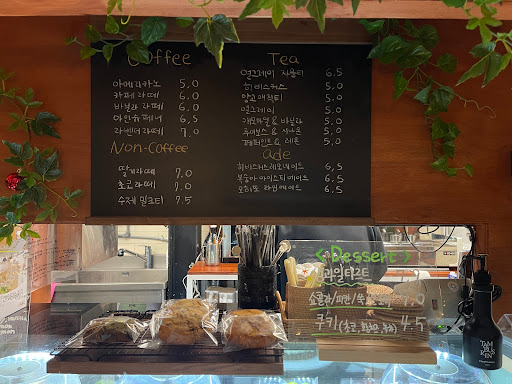 Coffee
아메리카노 5.0
카페 라떼 6.0
바닐라 라떼 6.0
아인슈페너 6.0
라벤더라떼 7.0
Non-Coffee
딸기라떼 7.0
초코라떼 7.0
수제 밀크티 7.5
Tea
얼그레이 자몽티 6.5
히비스커스 5.0
망고 애찍티 5.0
얼그레이 5.0
캐모마일 & 바닐라 5.0
루이보스 & 시나몬 5.0
페퍼민트 & 레몬 5.0
ade
히비스커스레모네이드 6.5
복숭아 아이스티에이드 6.5
모히또 라임에이드 6.5
<Dessert>
과일타르트
7.0
쿠키 4.5